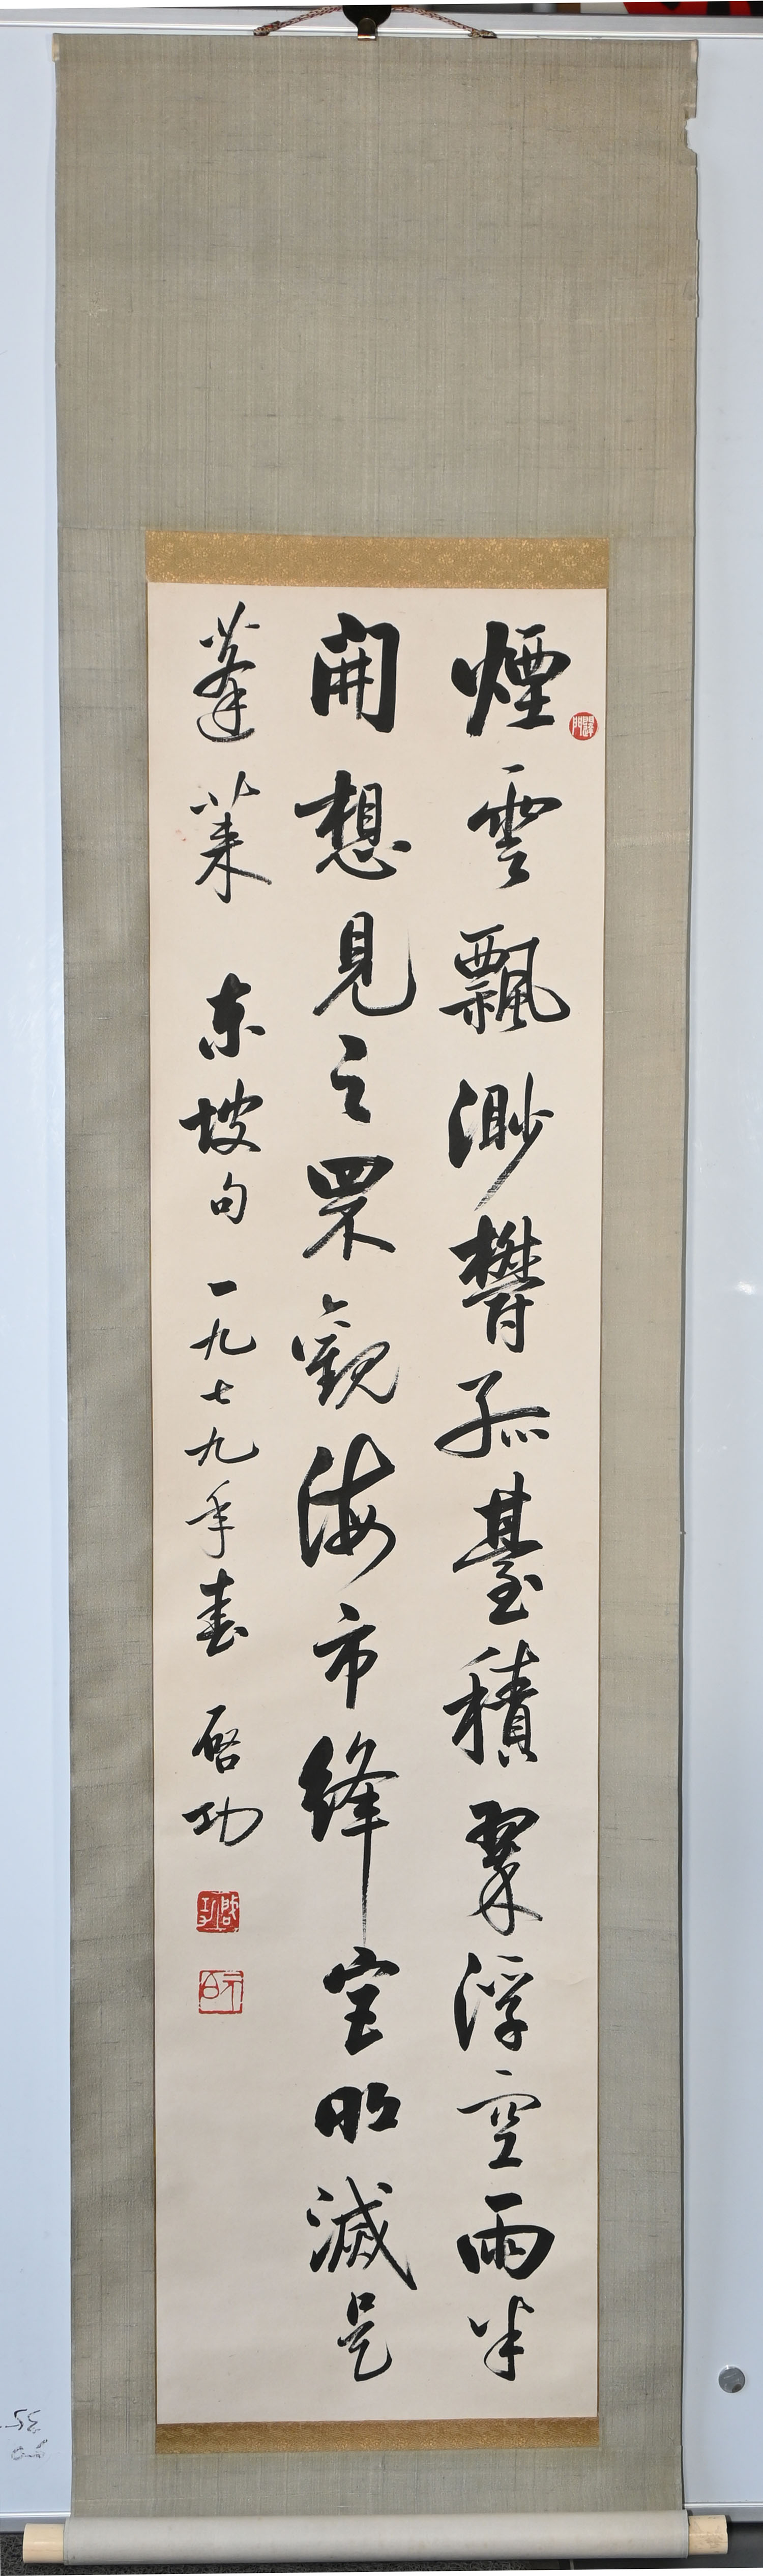 煙雲飄渺欝孤臺積翠浮空雨半
開想見之罘觀海市絳宮明滅是
蓬萊 东坡句 一九七九年春 启功
啟功
元白